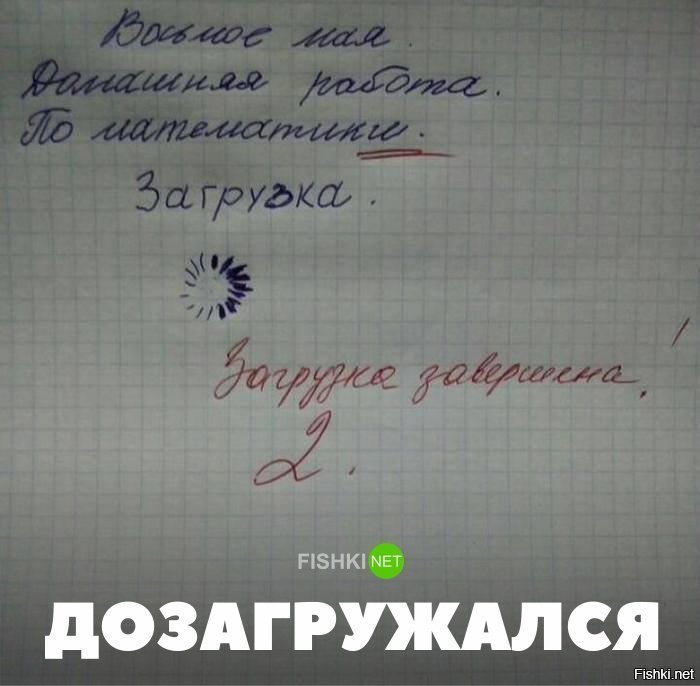 Восьмое мая.
Домашняя работа.
По математики.
Загрузка.
Загрузка завершена!
2.
FISHKI NET
ДОЗАГРУЖАЛСЯ
Fishki.net